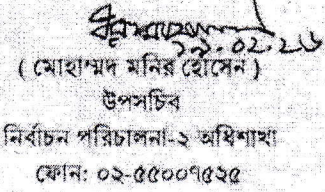 ১৯.০২.২৬
( মোহাম্মদ মনির হোসেন )
উপসচিব
নির্বাচন পরিচালনা-২ অধিশাখা
ফোন: ০২-৫৫০০৭৫২৫